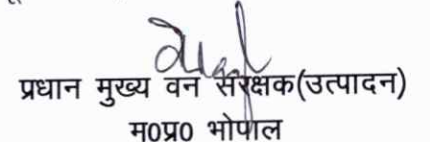 प्रधान मुख्य वन संरक्षक(उत्पादन)
म0प्र0 भोपाल